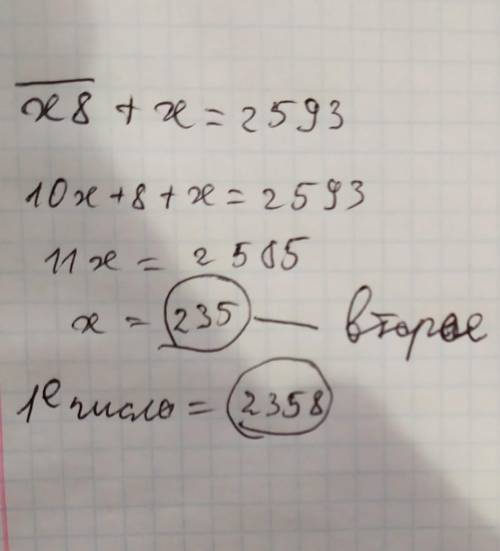 x8 + x = 2593
10x + 8 + x = 2593
11x = 2585
x = 235 — второе
1е число = 2358